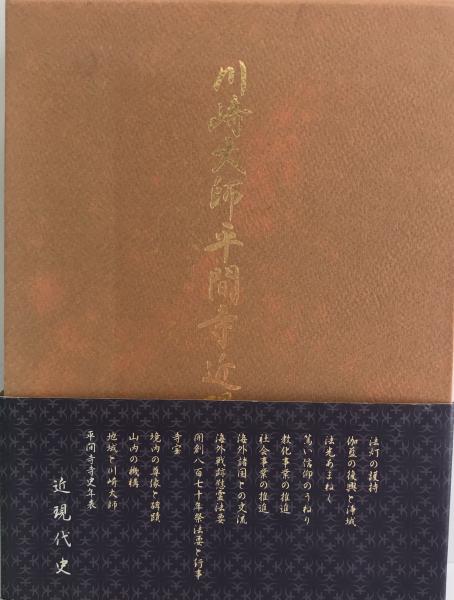 川崎大師平間寺近現
法灯の護持
伽藍の復興と浄域
法光あまねく
篤い信仰のうねり
教化事業の推進
社会事業の推進
海外諸国との交流
海外戦跡慰霊法要
開創八百七十年祭法要と行事
寺宝
境内の尊像と碑蹟
山内の機構
地域と川崎大師
平間寺寺史年表
近現代史